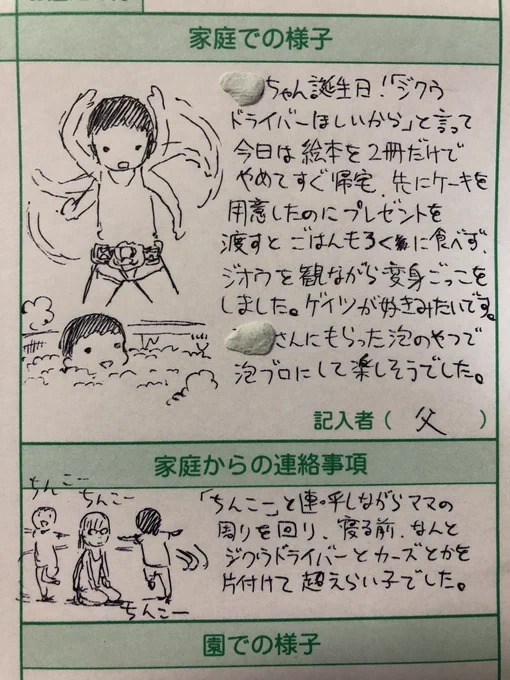 家庭での様子
ちゃん誕生日！「ジクウ
ドライバーほしいから」と言って
今日は絵本を2冊だけで
やめてすぐ帰宅、先にケーキを
用意したのにプレゼントを
渡すとごはんもろくに食べず、
ジオウを観ながら変身ごっこを
しました。ゲイツが好きみたいです。
さんにもらった泡のやつで
泡ブロにして楽しそうでした。
記入者（ 父 ）
家庭からの連絡事項
ちんこー
ちんこー
ちんこー
「ちんこー」と連呼しながらママの
周りを回り、寝る前、なんと
ジクウドライバーとカーズとかを
片付けて超えらい子でした。
園での様子